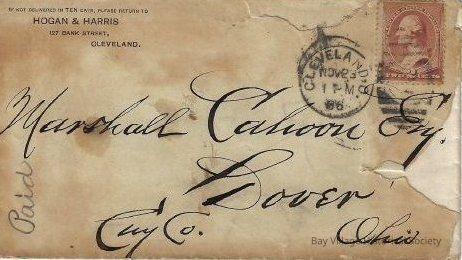 IF NOT DELIVERED IN TEN DAYS, PLEASE RETURN TO
HOGAN & HARRIS
127 BANK STREET,
CLEVELAND.
CLEVELAND, O
NOV 23
1 PM
86
TWO CENTS
Marshall Cahoon Esq.
Dover
Cuy Co.
Ohio
Paid
Bay Village Historical Society